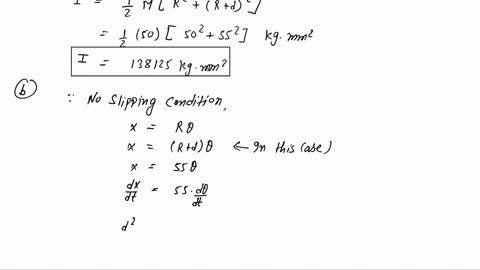 I = 1/2 M [R² + (R+d)²]
= 1/2 (50) [50² + 55²] kg.mm²
I = 138125 kg.mm²
(b) ∵ No slipping condition,
x = Rθ
x = (R+d)θ ← In this case)
x = 55θ
dx/dt = 55. dθ/dt
d²